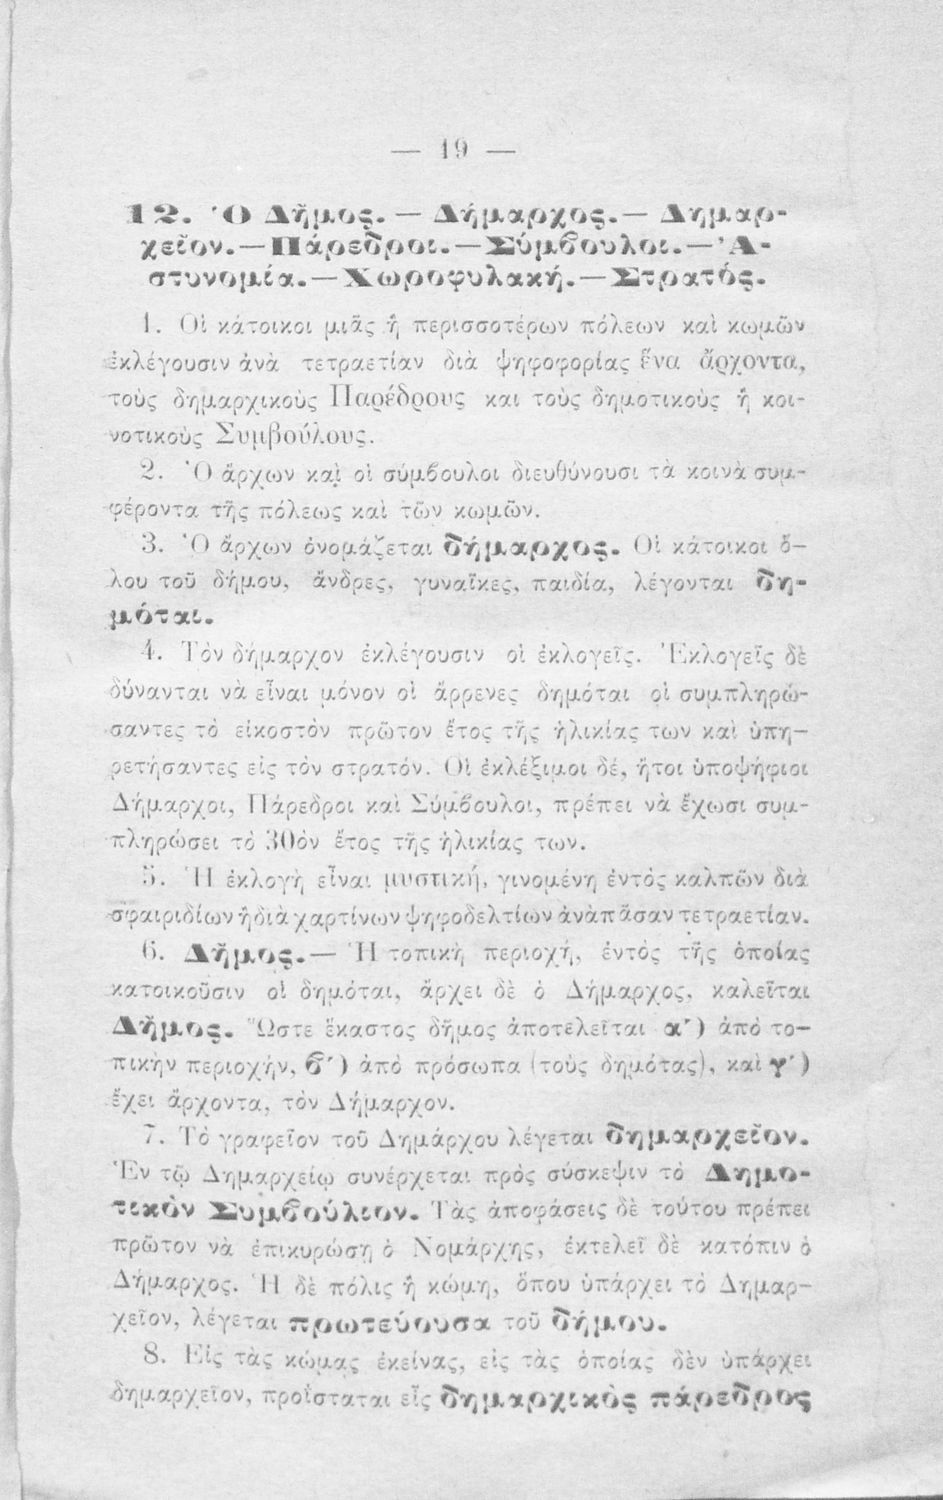 — 19 —
12. Ὁ Δῆμος. — Δήμαρχος. — Δημαρ-
χεῖον. — Πάρεδροι. — Σύμβουλοι. — Ἀ-
στυνομία. — Χωροφυλακή. — Στρατός.
1. Οἱ κάτοικοι μιᾶς ἢ περισσοτέρων πόλεων καὶ κωμῶν
ἐκλέγουσιν ἀνὰ τετραετίαν διὰ ψηφοφορίας ἕνα ἄρχοντα,
τοὺς δημαρχικοὺς Παρέδρους καὶ τοὺς δημοτικοὺς ἢ κοι-
νοτικοὺς Συμβούλους.
2. Ὁ ἄρχων καὶ οἱ σύμβουλοι διευθύνουσι τὰ κοινὰ συμ-
φέροντα τῆς πόλεως καὶ τῶν κωμῶν.
3. Ὁ ἄρχων ὀνομάζεται δήμαρχος. Οἱ κάτοικοι ὅ-
λου τοῦ δήμου, ἄνδρες, γυναῖκες, παιδία, λέγονται δη-
μόται.
4. Τὸν δήμαρχον ἐκλέγουσιν οἱ ἐκλογεῖς. Ἐκλογεῖς δὲ
δύνανται νὰ εἶναι μόνον οἱ ἄρρενες δημόται οἱ συμπληρώ-
σαντες τὸ εἰκοστὸν πρῶτον ἔτος τῆς ἡλικίας των καὶ ὑπη-
ρετήσαντες εἰς τὸν στρατόν. Οἱ ἐκλέξιμοι δέ, ἤτοι ὑποψήφιοι
Δήμαρχοι, Πάρεδροι καὶ Σύμβουλοι, πρέπει νὰ ἔχωσι συμ-
πληρώσει τὸ 30όν ἔτος τῆς ἡλικίας των.
5. Ἡ ἐκλογὴ εἶναι μυστική, γινομένη ἐντὸς καλπῶν διὰ
σφαιριδίων ἢ διὰ χαρτίνων ψηφοδελτίων ἀνὰ πᾶσαν τετραετίαν.
6. Δῆμος. — Ἡ τοπικὴ περιοχή, ἐντὸς τῆς ὁποίας
κατοικοῦσιν οἱ δημόται, ἄρχει δὲ ὁ Δήμαρχος, καλεῖται
Δῆμος. Ὥστε ἕκαστος δῆμος ἀποτελεῖται α΄) ἀπὸ το-
πικὴν περιοχήν, β΄) ἀπὸ πρόσωπα (τοὺς δημότας), καὶ γ΄)
ἔχει ἄρχοντα, τὸν Δήμαρχον.
7. Τὸ γραφεῖον τοῦ Δημάρχου λέγεται δημαρχεῖον.
Ἐν τῷ Δημαρχείῳ συνέρχεται πρὸς σύσκεψιν τὸ Δημο-
τικὸν Συμβούλιον. Τὰς ἀποφάσεις δὲ τούτου πρέπει
πρῶτον νὰ ἐπικυρώσῃ ὁ Νομάρχης, ἐκτελεῖ δὲ κατόπιν ὁ
Δήμαρχος. Ἡ δὲ πόλις ἢ κώμη, ὅπου ὑπάρχει τὸ Δημαρ-
χεῖον, λέγεται πρωτεύουσα τοῦ δήμου.
8. Εἰς τὰς κώμας ἐκείνας, εἰς τὰς ὁποίας δὲν ὑπάρχει
δημαρχεῖον, προΐσταται εἷς δημαρχικὸς πάρεδρος